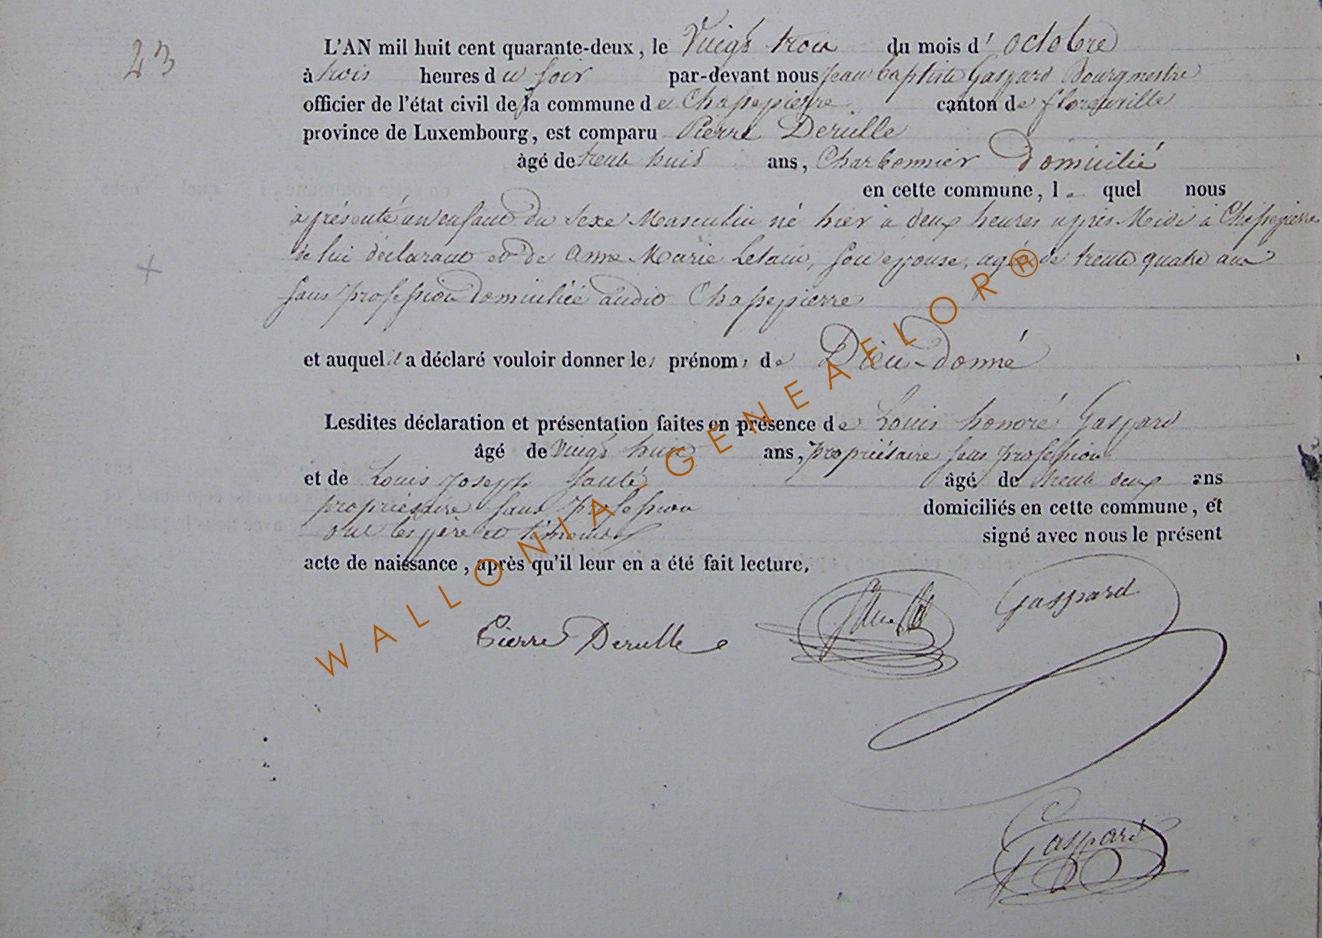 23
L'AN mil huit cent quarante-deux, le Vingt trois du mois d' octobre
à trois heures du soir par-devant nous Jean Baptiste Gaspard Bourgmestre
officier de l'état civil de la commune de Chassepierre canton de florenville
province de Luxembourg, est comparu Pierre Derulle
àgé de trente huit ans, Charbonnier Domicilié
en cette commune, le quel nous
a présenté un enfant du Sexe Masculin né hier à deux heures après Midi à Chassepierre
de lui déclarant et de Anne Marie Letain, son épouse, agée de trente quatre ans
sans profession domiciliée audit Chassepierre
et auquel il a déclaré vouloir donner les prénoms de Dieu-donné
Lesdites déclaration et présentation faites en présence de Louis honoré Gaspard
âgé de Vingt huit ans, propriétaire sans profession
et de Louis Joseph âgé de trente deux ans
propriétaire sans profession domiciliés en cette commune, et
ont les père et témoins signé avec nous le présent
acte de naissance, après qu'il leur en a été fait lecture.
Pierre Derulle Gaspard
Gaspard
WALLONIA GENEAFLOR®